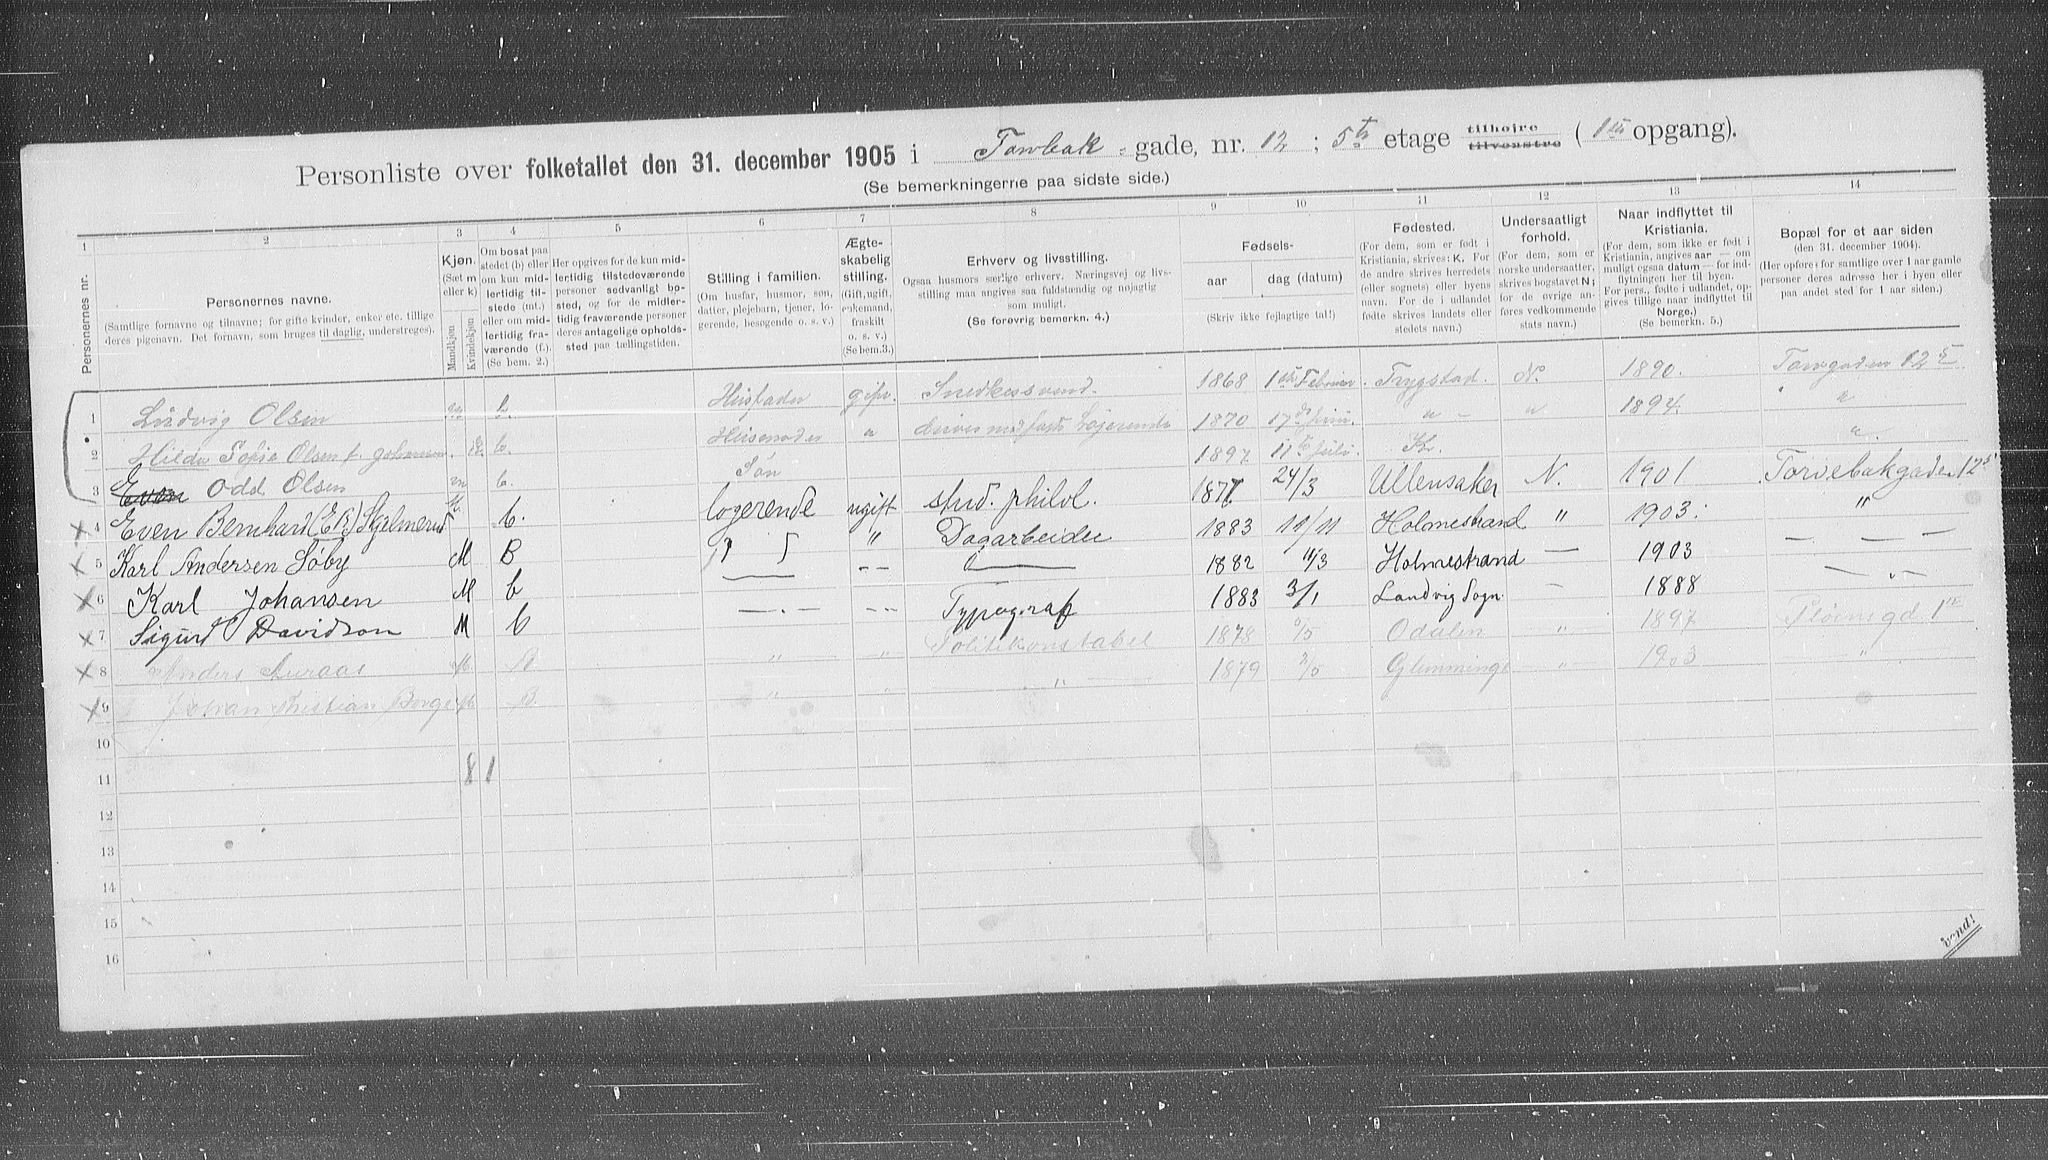 Personliste over folketallet den 31. december 1905 i Torvbak-gade, nr. 12 ; 5te etage tilhøjre tilvenstre ( 1ste opgang).
(Se bemerkningerne paa sidste side.)
1 2 3 4 5 6 7 8 9 10 11 12 13 14
Personernes nr.
Personernes navne.
(Samtlige fornavne og tilnavne; for gifte kvinder, enker etc. tillige deres pigenavn. Det fornavn, som bruges til daglig, understreges).
Kjøn.
(Sæt m eller k)
Mandkjøn
Kvindekjøn
Om bosat paa stedet (b) eller om kun midlertidig tilstede (mt.) eller om midlertidig fraværende (f.)
(Se bem. 2.)
Her opgives for de kun midlertidig tilstedeværende personer sedvanligt bosted, og for de midlertidig fraværende personer deres antagelige opholdssted paa tællingstiden.
Stilling i familien.
(Om husfar, husmor, søn, datter, plejebarn, tjener, logerende, besøgende o. s. v.)
Ægteskabelig stilling.
(Gift, ugift, enkemand, fraskilt o. s. v.)
(Se bem.3.)
Erhverv og livsstilling.
Ogsaa husmors særlige erhverv. Næringsvej og livsstilling maa angives saa fuldstændig og nøjagtig som muligt.
(Se forøvrig bemerkn. 4.)
Fødsels-
aar dag (datum)
(Skriv ikke fejlagtige tal!)
Fødested.
(For dem, som er født i Kristiania, skrives: K. For de andre skrives herredets (eller sognets) eller byens navn. For de i udlandet fødte skrives landets eller stedets navn.)
Undersaatligt forhold.
(For dem, som er norske undersaatter, skrives bogstavet N; for de øvrige anføres vedkommende stats navn.)
Naar indflyttet til Kristiania.
(For dem, som ikke er født i Kristiania, angives aar — om muligt ogsaa datum — for indflytningen her til byen. For pers., fødte i udlandet, opgives tillige naar indflyttet til Norge.)
(Se bemerkn. 5.)
Bopæl for et aar siden
(den 31. december 1904).
(Her opføres for samtlige over 1 aar gamle personer deres adresse her i byen eller paa andet sted for 1 aar siden.)
1 Ludvig Olsen m b. Husfader gift. Snedkersvend. 1868 1ste Februar. Trygstad. N. 1890. Torvgaden 12 5
2 Hilda Sofie Olsen f. Johansen. k. b. Husmoder " 1870 17de " - " 1894. "
3 Even Odd Olsen m b. Søn 1897 11te Juli. K. "
4 Even Bernhard (E B) Skjelmerud M. b. logerende ugift stud. philol. 1877 24/3 Ullensaker N. 1901 Torvebakgaden 12 5
5 Karl Andersen Søby M B " Dagarbeider 1883 11/11 Holmestrand " 1903. "
6 Karl Johansen M b — - - — 1882 11/3 Holmestrand — 1903 — — —
7 Sigurd Davidson M b — . — - - - Typograf 1883 3/1 Landvig Sogn - 1888 — " —
8 Anders Auraas M. B " " Politikonstabel 1878 6/5 Odalen " 1897
9 Johan Kristian Borge M. B. " " " 1879 3/5 Glemminge " 1903 "
10
11 8 1
12
13
14
15
16
vend!